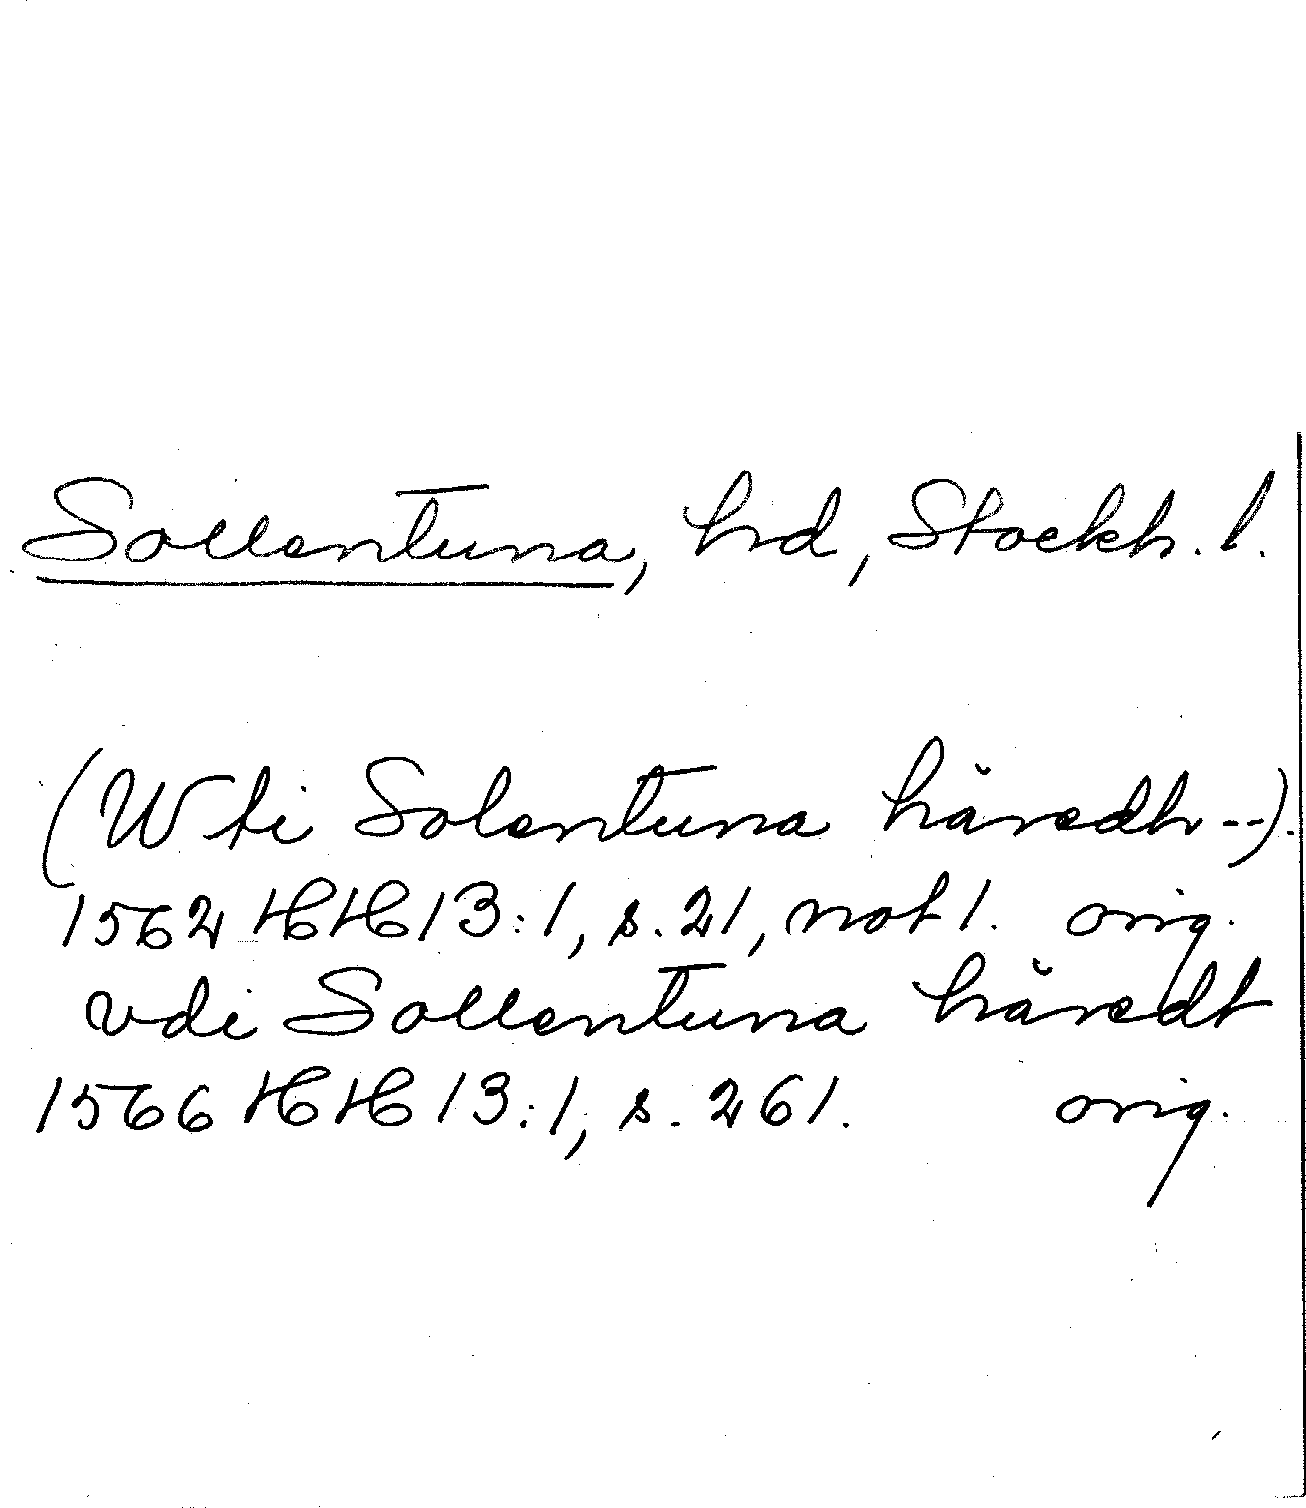 Sollentuna, hd, Stockh. l.
(Wti Solentuna häredh--).
1562 HH 13:1, s. 21, not 1. orig.
vdi Sollentuna häredt
1566 HH 13:1, s. 261. orig.